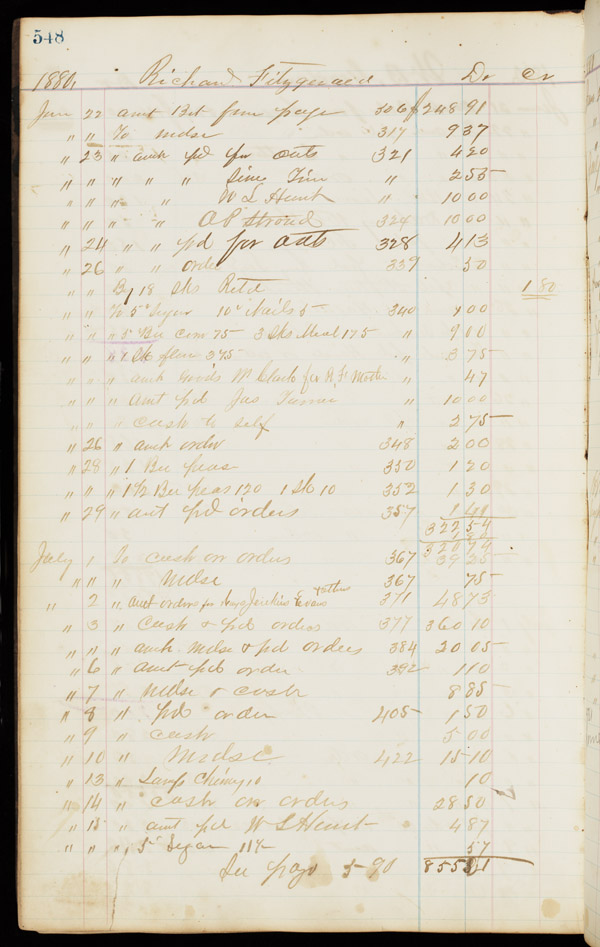 548
1880, Richard Fitzgerald Dr Cr
June 22 amt Bot from page 306 248 91
" " To mdse 317 9 37
" 23 " amt pd for oats 321 4 20
" " " " " " 2 55
" " " " W L Hunt " 10 00
" " " " O P Stroud 324 10 00
" 24 " " pd for oats 328 4 13
" 26 " " order 339 50
" " By 18 Sks Retd 1 80
" " To 5 Sugar 10 Nails 5 340 1 00
" " " 5 Bu Corn 75 3 Sks Meal 175 " 9 00
" " " 1 Sk flour 375 " 3 75
" " " amt goods W Clark for " 47
" " " amt pd Jas " 10 00
" " " cash to self " 2 75
" 26 " amt order 348 2 00
" 28 " 1 Bu peas 350 1 20
" " " 1 1/2 Bu peas 120 1 Sk 10 352 1 30
" 29 " amt pd orders 357 1 41
322 54
1 80
320 74
July 1 To cash on orders 367 39 25
" " " Mdse 367 75
" 2 " amt orders for Jenkins & Evans & others 371 48 73
" 3 " Cash & pd orders 377 360 10
" " " amt mdse & pd orders 384 20 05
" 6 " amt pd order 392 1 10
" 7 " Mdse & cash 8 85
" 8 " pd order 405 1 50
" 9 " cash 5 00
" 10 " Mdse 422 15 10
" 13 " Lamp Chimy 10 10
" 14 " cash on orders 28 50
" 15 " amt pd W L Hunt 4 87
" " " 5 Sugar 11½ 57
See page 590 855 21